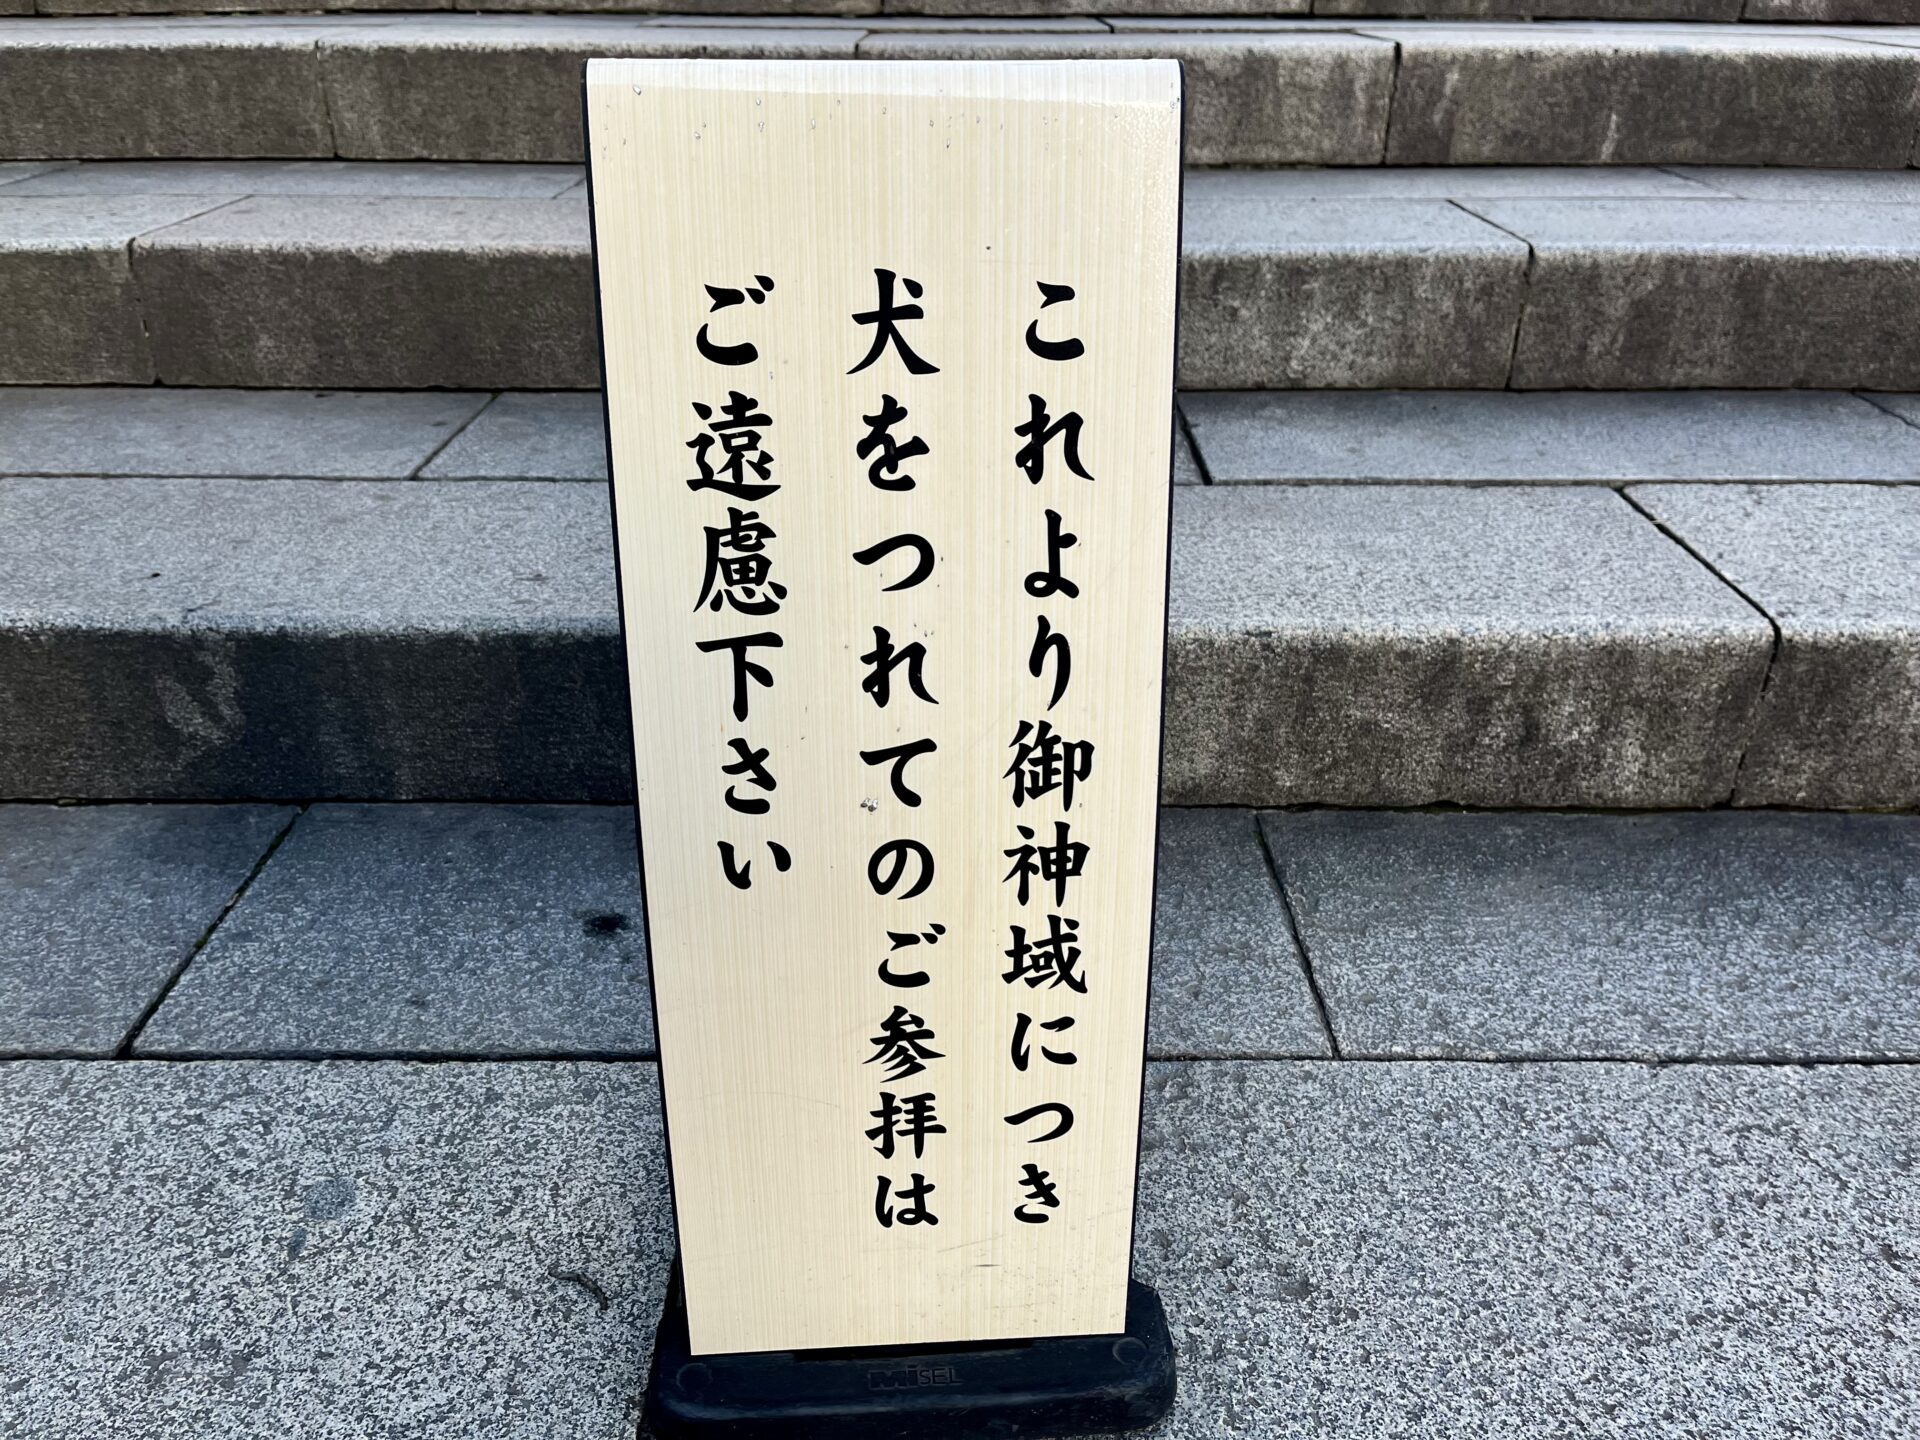 これより御神域につき
犬をつれてのご参拝は
ご遠慮下さい
MiSEL